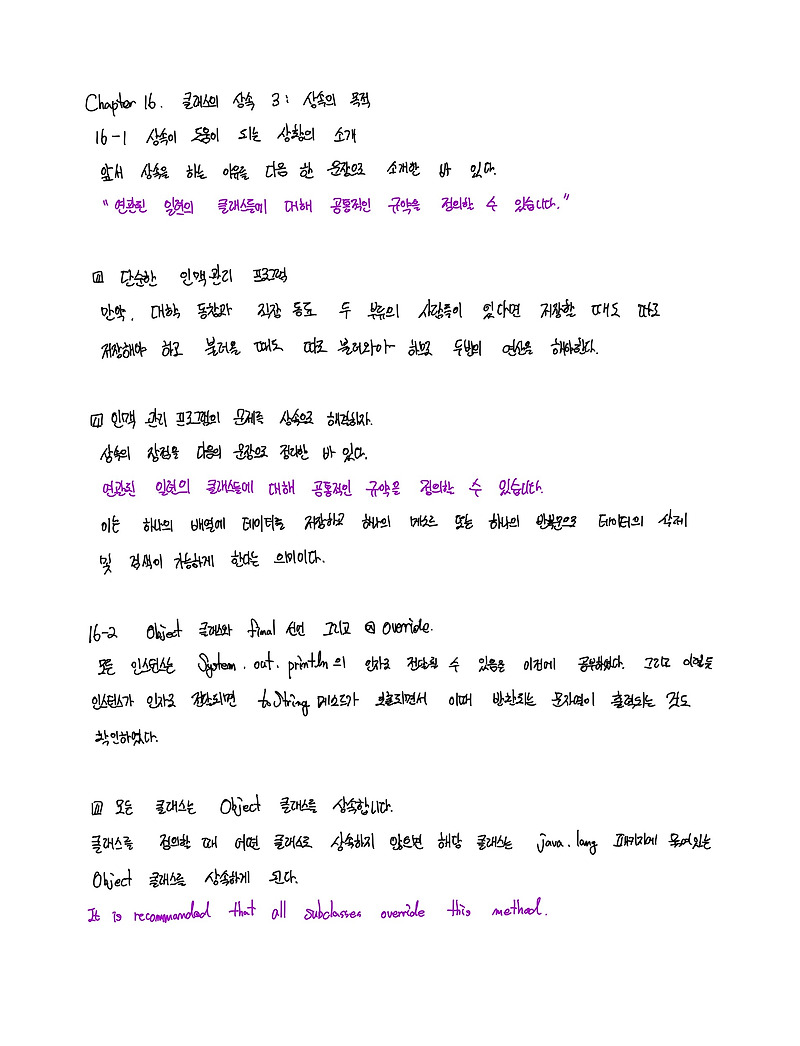 Chapter 16. 클래스의 상속 3 : 상속의 목적
16-1 상속이 도움이 되는 상황의 소개
앞서 상속을 하는 이유를 다음 한 문장으로 소개한 바 있다.
"연관된 일련의 클래스들에 대해 공통적인 규약을 정의할 수 있습니다."
단순한 인맥관리 프로그램
만약, 대학 동창과 직장 동료 두 부류의 사람들이 있다면 저장할 때도 따로
저장해야 하고 불러올 때도 따로 불러와야 하므로 두번의 연산을 해야한다.
인맥 관리 프로그램의 문제를 상속으로 해결하자.
상속의 장점을 다음의 문장으로 정리한 바 있다.
연관된 일련의 클래스들에 대해 공통적인 규약을 정의할 수 있습니다.
이는 하나의 배열에 데이터를 저장하고 하나의 메소드 또는 하나의 반복문으로 데이터의 삭제
및 검색이 가능하게 한다는 의미이다.
16-2 Object 클래스와 final 선언 그리고 @Override.
모든 인스턴스는 System.out.println의 인자로 전달될 수 있음을 이전에 공부하였다. 그리고 이렇듯
인스턴스가 인자로 전달되면 toString 메소드가 호출되면서 이때 반환되는 문자열이 출력되는 것도
확인하였다.
모든 클래스는 Object 클래스를 상속합니다.
클래스를 정의할 때 어떤 클래스도 상속하지 않으면 해당 클래스는 java.lang 패키지에 묶여있는
Object 클래스를 상속하게 된다.
It is recommanded that all subclasses override this method.